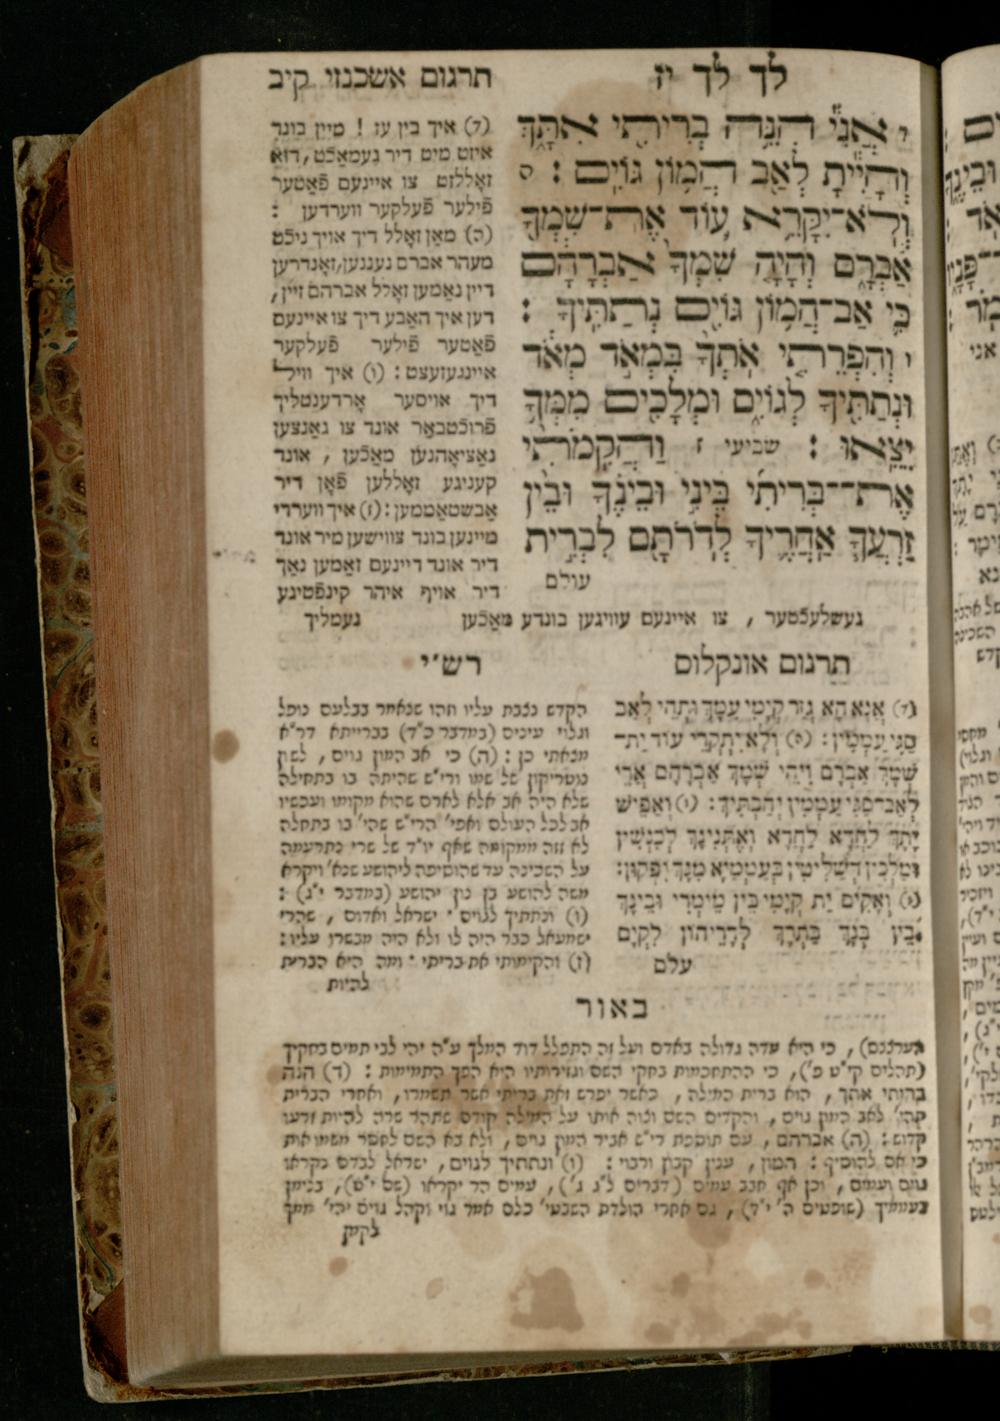 לך לך יז
תרגום אשכנזי קיב
ד אֲנִי הִנֵּה בְרִיתִי אִתָּךְ
וְהָיִיתָ לְאַב הֲמוֹן גּוֹיִם : ה
וְלֹא־יִקָּרֵא עוֹד אֶת־שִׁמְךָ
אַבְרָם וְהָיָה שִׁמְךָ אַבְרָהָם
כִּי אַב־הֲמוֹן גּוֹיִם נְתַתִּיךָ :
ו וְהִפְרֵתִי אֹתְךָ בִּמְאֹד מְאֹד
וּנְתַתִּיךָ לְגוֹיִם וּמְלָכִים מִמְּךָ
יֵצֵאוּ : שביעי ז וַהֲקִמֹתִי
אֶת־בְּרִיתִי בֵּינִי וּבֵינֶךָ וּבֵין
זַרְעֲךָ אַחֲרֶיךָ לְדֹרֹתָם לִבְרִית
עולם
(ד) איך בין עז ! מיין בונד
איזט מיט דיר געמאַכֿט, דוא
זאָללזט צו איינעם פֿאָטער
פֿילער פֿעלקער ווערדען :
(ה) מאַן זאָלל דיך אויך ניכֿט
מעהר אברם נעננען, זאָנדערן
דיין נאָמען זאָלל אברהם זיין,
דען איך האַבע דיך צו איינעם
פֿאָטער פֿילער פֿעלקער
איינגעזעצט : (ו) איך וויל
דיך אויסער אָרדענטליך
פֿרוכֿטבאַר אונד צו גאַנצען
נאַציאָהנען מאַכֿען , אונד
קעניגע זאָללען פֿאָן דיר
אַבשטאַממען : (ז) איך ווערדי
מיינען בונד צווישען מיר אונד
דיר אונד דיינעם זאַמען נאָך
דיר אויף איהר קינפֿטיגע
געשלעכֿטער , צו איינעם עוויגען בונדע מאַכֿען נעמליך
תרגום אונקלוס
(ד) אֲנָא הָא גְזַר קְיָמִי עִמָּךְ וּתְהֵי לְאַב
סַגִּי עַמְמִין : (ה) וְלָא יִתְקְרֵי עוֹד יַת־
שְׁמָךְ אַבְרָם וִיהֵי שְׁמָךְ אַבְרָהָם אֲרֵי
לְאַב־סַגִּי עַמְמִין יְהַבְתִּיךְ : (ו) וְאַפֵּישׁ
יָתָךְ לַחֲדָא לַחֲדָא וְאֶתְּנִינָךְ לְכִנְשִׁין
וּמַלְכִין דְּשַׁלִּיטִין בְּעַמְמַיָּא מִנָּךְ יִפְּקוּן :
(ז) וְאָקֵים יַת קְיָמִי בֵּין מֵימְרִי וּבֵינָךְ
וּבֵין בְּנָךְ בַּתְרָךְ לְדָרֵיהוֹן לִקְיָם
עלם
רש״י
הקדש נצבת עליו וזהו שנאמר בבלעם נופל
וגלוי עינים (במדבר כ״ד) בברייתא דר״א
מצאתי כן : (ה) כי אב המון גוים , לשון
נוטריקון של שמו ורי״ש שהיתה בו בתחילה
שלא היה אב אלא לארם שהוא מקומו ועכשיו
אב לכל העולם ואפי׳ הרי״ש שהי׳ בו בתחלה
לא זזה ממקומה שאף יו״ד של שרי נתרעמה
על השכינה עד שהוסיפה ליהושע שנא׳ ויקרא
משה להושע בן נון יהושע (במדבר י״ג) :
(ו) ונתתיך לגוים · ישראל ואדום , שהרי
ישמעאל כבר היה לו ולא היה מבשרו עליו :
(ז) והקימותי את בריתי · ומה היא הברית
להיות
באור
הערכים) , כי היא מדה גדולה באדם ועל זה התפלל דוד המלך ע״ה יהי לבי תמים בחקיך
(תהלים קי״ט פ׳) , כי ההתחכמות בחקי השם וגזירותיו היא הפך התמימות : (ד) הנה
בריתי אתך , הוא ברית המילה , כאשר יפרש זאת בריתי אשר תשמרו , ואחרי הברית
תהי׳ לאב המון גוים , והקדים השם וצוה אותו על המילה קודם שתהר שרה להיות זרעו
קדוש : (ה) אברהם , עם תוספת ה״א אביר המון גוים , ולא בא השם לחסר משמו אות
כי אם להוסיף : המון , ענין קבוץ ורבוי : (ו) ונתתיך לגוים , ישראל לבדם נקראו
גוים ועמים , וכן אף חבב עמים (דברים ל״ג ג׳) , עמים הר יקראו (שם י״ט) , בנימן
בעממיך (שופטים ה׳ י״ד) , גם אחרי הולדת השבטי׳ כלם אמר גוי וקהל גוים יהי׳ ממך
לקיים